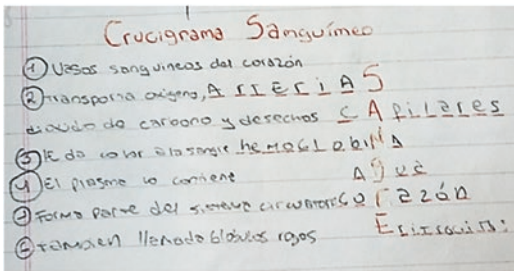 Crucigrama Sanguíneo
① Vasos sanguineos del corazón
② transporta oxigeno, ArrEriAS
dioxido de carbono y desechos CApilares
③ le da color a la sangre hemoGLobiNA
④ El plasma lo contiene Agua
⑤ Forma parte del sistema circulatorio Corazón
⑥ tambien llamado glóbulos rojos Eritrocitos